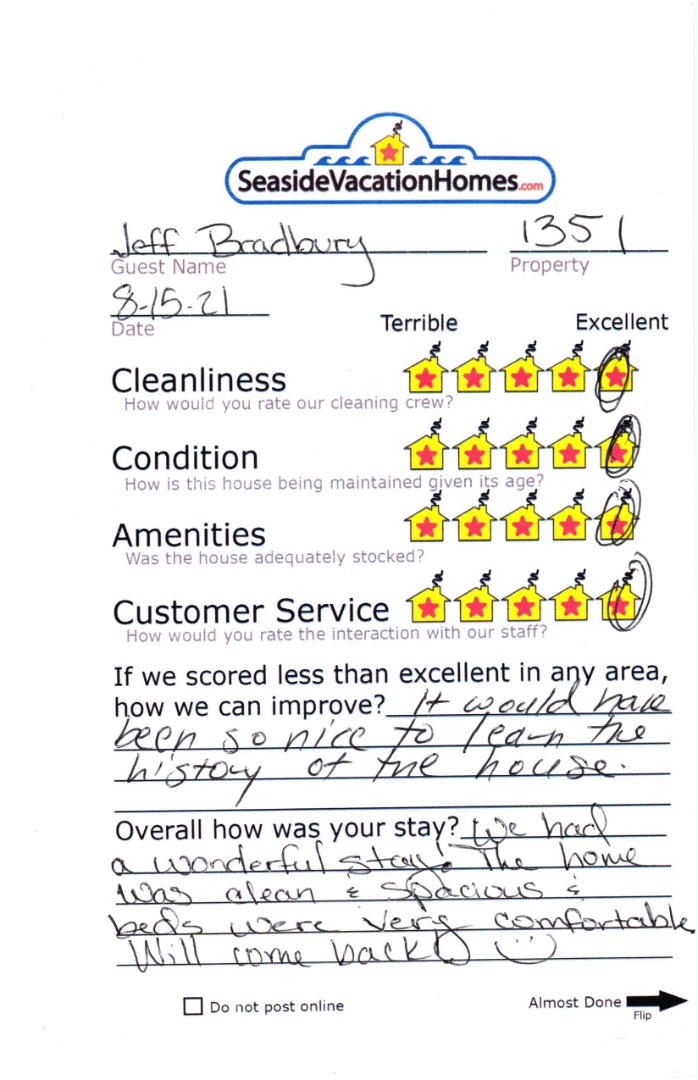 SeasideVacationHomes.com
Jeff Bradbury 1351
Guest Name Property
8-15-21
Date
Terrible Excellent
Cleanliness
How would you rate our cleaning crew?
Condition
How is this house being maintained given its age?
Amenities
Was the house adequately stocked?
Customer Service
How would you rate the interaction with our staff?
If we scored less than excellent in any area,
how we can improve? It would have
been so nice to learn the
history of the house.
Overall how was your stay? We had
a wonderful stay! The home
was clean & spacious &
beds were very comfortable
Will come back
Do not post online Almost Done
Flip